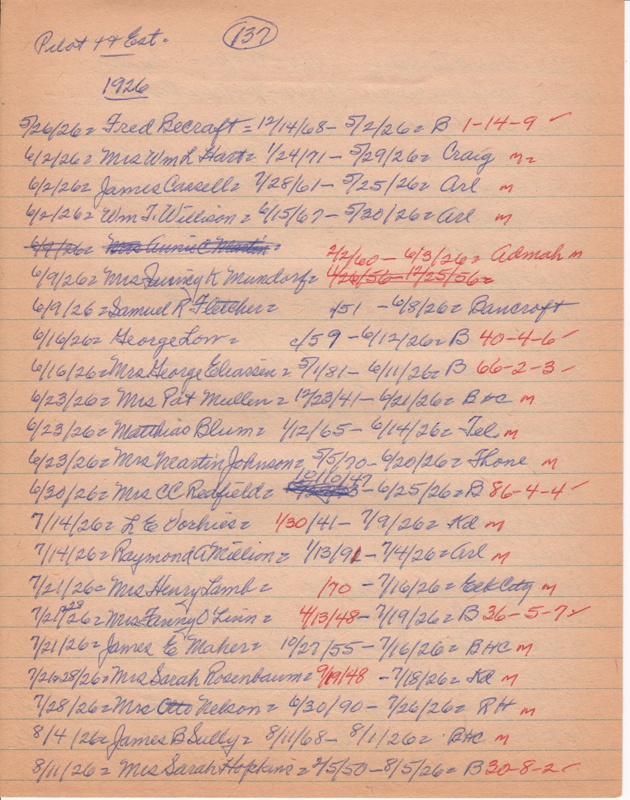 Pilot ++ Est = 137
1926
5/26/26 = Fred Becraft = 12/14/68 - 5/2/26 = B 1-14-9 ✓
6/2/26 = Mrs Wm L Hart = 1/24/71 - 5/29/26 = Craig m =
6/2/26 = James Cassell = 7/28/61 - 5/25/26 = Arl m
6/2/26 = Wm T. Willison = 6/15/67 - 5/30/26 = Arl m
6/9/26 = Mrs Annie C Martin =
2/2/60 - 6/3/26 = Admah m
6/9/26 = Mrs Fanny K Mundorf = 4/26/56 - 12/25/56 =
6/9/26 = Samuel R Fletcher = c/51 - 6/8/26 = Bancroft
6/16/26 = George Low = c/59 - 6/12/26 = B 40-4-6 ✓
6/16/26 = Mrs George Eliassen = 5/1/81 - 6/11/26 = B 66-2-3 ✓
6/23/26 = Mrs Pat Mullen = 12/23/41 - 6/21/26 = BHC m
6/23/26 = Matthias Blum = 1/12/65 - 6/14/26 = Tek m
6/23/26 = Mrs Martin Johnson = 5/5/70 - 6/20/26 = Fhone m
10/10/47
6/30/26 = Mrs CC Redfield = - 6/25/26 = B 86-4-4 ✓
7/14/26 = L E Vorhies = 1/30/41 - 7/9/26 = Kd m
7/14/26 = Raymond A Million = 1/13/91 - 7/4/26 = Arl m
7/21/26 = Mrs Henry Lamb = /70 - 7/16/26 = Eck City m
7/21+28/26 = Mrs Fanny O Linn = 4/13/48 - 7/19/26 = B 36-5-7 ✓
7/21/26 = James E Maher = 10/27/55 - 7/16/26 = BHC m
7/21+28/26 = Mrs Sarah Rosenbaum = 9/19/48 - 7/18/26 = Kd m
7/28/26 = Mrs Otto Nelson = 6/30/90 - 7/26/26 = RH m
8/4/26 = James B Sully = 8/11/68 - 8/1/26 = BHC m
8/11/26 = Mrs Sarah Hopkins = 2/5/50 - 8/5/26 = B 30-8-2 ✓